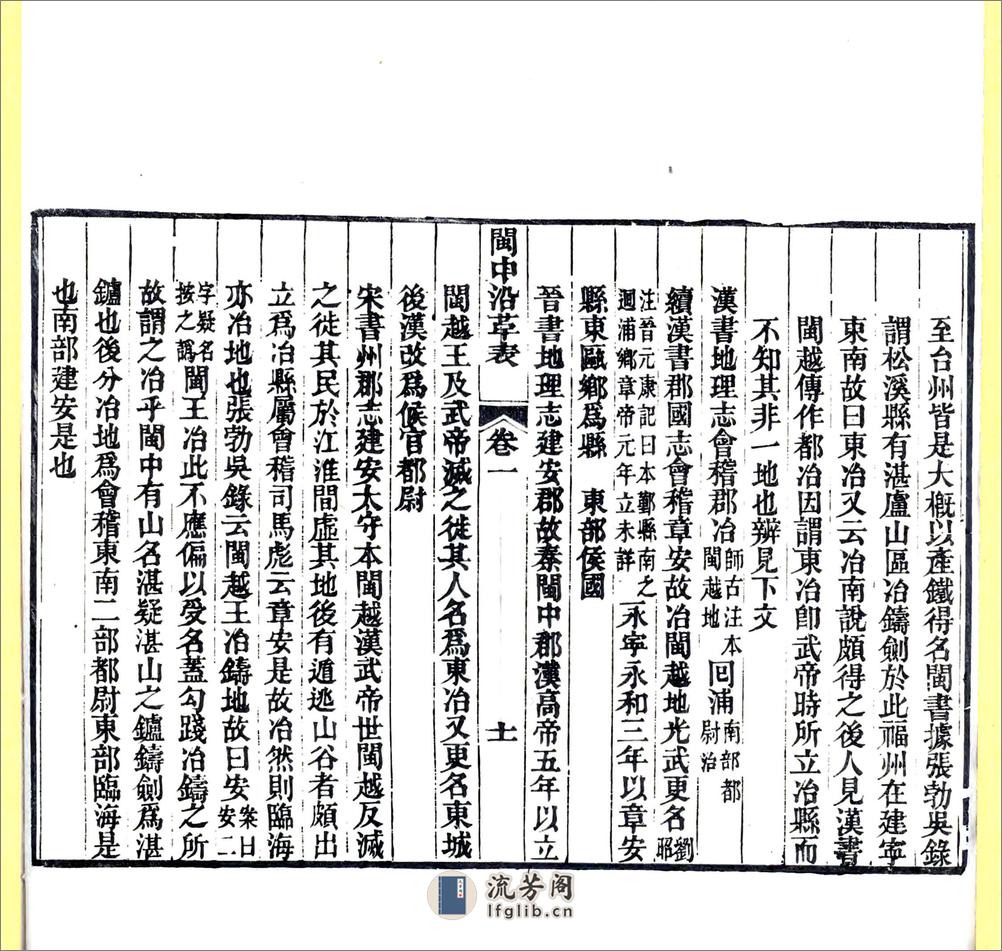 至台州皆是大概以產鐵得名閩書據張勃吳錄
謂松溪縣有湛盧山區冶鑄劍於此福州在建寧
東南故曰東冶又云冶南說頗得之後人見漢書
閩越傳作都冶因謂東冶卽武帝時所立冶縣而
不知其非一地也辨見下文
漢書地理志會稽郡冶師古注本閩越地回浦南部都尉治
續漢書郡國志會稽章安故冶閩越地光武更名劉昭
注晉元康記曰本鄞縣南之迴浦鄉章帝元年立未詳永寧永和三年以章安
縣東甌鄉為縣 東部侯國
晉書地理志建安郡故秦閩中郡漢高帝五年以立
閩中沿革表 卷一 十一
閩越王及武帝滅之徙其人名為東冶又更名東城
後漢改為候官都尉
宋書州郡志建安太守本閩越漢武帝世閩越反滅
之徙其民於江淮間虛其地後有遁逃山谷者頗出
立為冶縣屬會稽司馬彪云章安是故冶然則臨海
亦冶地也張勃吳錄云閩越王冶鑄地故曰安案曰安安二
字疑名按之譌閩王冶此不應偏以受名蓋勾踐冶鑄之所
故謂之冶乎閩中有山名湛疑湛山之鑪鑄劍為湛
鑪也後分冶地為會稽東南二部都尉東部臨海是
也南部建安是也
流芳阁
lfglib.cn